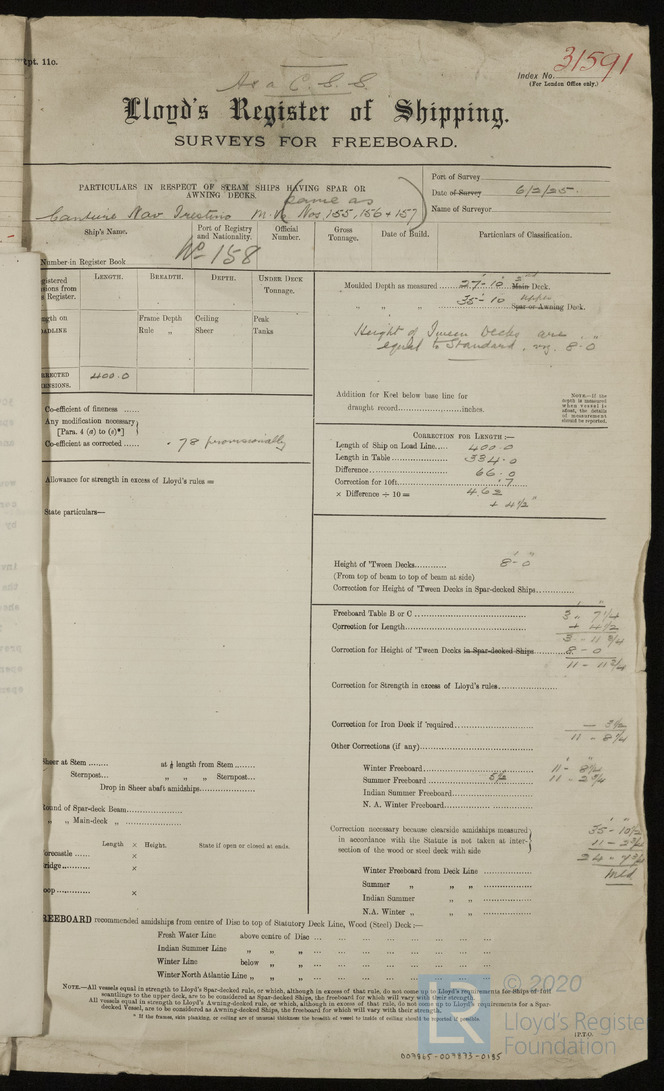 Rpt. 11c.
31591
Index No.
(For London Office only.)
As a C. S. S.
Lloyd's Register of Shipping.
SURVEYS FOR FREEBOARD.
PARTICULARS IN RESPECT OF STEAM SHIPS HAVING SPAR OR
AWNING DECKS.
Port of Survey
Date of Survey 6/2/25.
Name of Surveyor
(Same as
Cantiere Nav Triestino M.V. Nos 155, 156 & 157)
Ship's Name.
Port of Registry
and Nationality.
Official
Number.
Gross
Tonnage.
Date of Build.
Particulars of Classification.
No 158
Number in Register Book
LENGTH. BREADTH. DEPTH. UNDER DECK
Tonnage.
Frame Depth Ceiling Peak
Rule " Sheer Tanks
400.0
Co-efficient of fineness
Any modification necessary
[Para. 4 (a) to (e)*]
Co-efficient as corrected .78 provisionally
Allowance for strength in excess of Lloyd's rules =
State particulars—
Sheer at Stem at ⅛ length from Stem
Sternpost " " " Sternpost
Drop in Sheer abaft amidships
Round of Spar-deck Beam
" " Main-deck "
Length × Height. State if open or closed at ends.
Forecastle ×
Bridge ×
Poop ×
Moulded Depth as measured 27'-10" 2nd Main Deck.
" " " 35-10 upper Spar or Awning Deck.
Height of Tween Decks are
equal to Standard, viz. 8'-0"
Addition for Keel below base line for
draught record inches.
NOTE—If the
depth is measured
when vessel is
afloat, the details
of measurement
should be reported.
CORRECTION FOR LENGTH:—
Length of Ship on Load Line 400.0
Length in Table 334.0
Difference 66.0
Correction for 10ft. .7
× Difference ÷ 10 = 4.62
+ 4½"
Height of 'Tween Decks 8'-0"
(From top of beam to top of beam at side)
Correction for Height of 'Tween Decks in Spar-decked Ships
Freeboard Table B or C 3'-7¼"
Correction for Length + 4½
3-11¾
Correction for Height of 'Tween Decks in Spar-decked Ships 8-0
11-11¾
Correction for Strength in excess of Lloyd's rules
Correction for Iron Deck if required — 3½
11-8¼
Other Corrections (if any)
Winter Freeboard 11-8¼
Summer Freeboard 5½ 11-2¾
Indian Summer Freeboard
N. A. Winter Freeboard
Correction necessary because clearside amidships measured
in accordance with the Statute is not taken at inter-
section of the wood or steel deck with side
35-10½
11-2¾
24-7¾
Mld
Winter Freeboard from Deck Line
Summer " " "
Indian Summer " "
N.A. Winter " " "
FREEBOARD recommended amidships from centre of Disc to top of Statutory Deck Line, Wood (Steel) Deck:—
Fresh Water Line above centre of Disc
Indian Summer Line " " "
Winter Line below " "
Winter North Atlantic Line " " "
NOTE.—All vessels equal in strength to Lloyd's Spar-decked rule, or which, although in excess of that rule, do not come up to Lloyd's requirements for Ships of full
scantlings to the upper deck, are to be considered as Spar-decked Ships, the freeboard for which will vary with their strength.
All vessels equal in strength to Lloyd's Awning-decked rule, or which, although in excess of that rule, do not come up to Lloyd's requirements for a Spar-
decked Vessel, are to be considered as Awning-decked Ships, the freeboard for which will vary with their strength.
* If the frames, skin planking, or ceiling are of unusual thickness the breadth of vessel to inside of ceiling should be reported if possible.
[P.T.O.
LR © 2020
Lloyd's Register
Foundation
007865-007873-0185